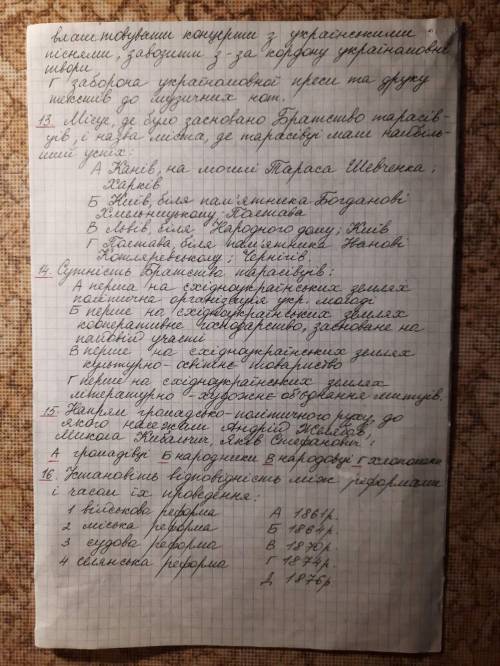 влаштовувати концерти з українськими
піснями, завозити з-за кордону україномовні
твори
Г заборона україномовної преси та друку
текстів до музичних нот.
13. Місце, де було засновано Братство тарасів-
ців, і назва міста, де тарасівці мали найбіль-
ший успіх:
А Канів, на могилі Тараса Шевченка;
Харків
Б Київ, біля пам'ятника Богданові
Хмельницькому; Полтава
В Львів, біля Народного дому; Київ
Г Полтава, біля пам'ятника Іванові
Котляревському; Чернігів.
14. Сутність Братства тарасівців:
А перша на східноукраїнських землях
політична організація укр. молоді
Б перше на східноукраїнських землях
кооперативне господарство, засноване на
пайовій участі
В перше на східноукраїнських землях
культурно-освітнє товариство
Г перші на східноукраїнських землях
літературно-художнє об'єднання митців.
15. Напрям громадсько-політичного руху, до
якого належали Андрій Желябов,
Микола Кибальчич, Яків Стефанович:
А громадівці Б народники В народовці Г хлопомани
16. Установіть відповідність між реформами
і часом їх проведення:
1 військова реформа А 1861р.
2 міська реформа Б 1864р.
3 судова реформа В 1870р.
4 селянська реформа Г 1874р.
Д 1876р